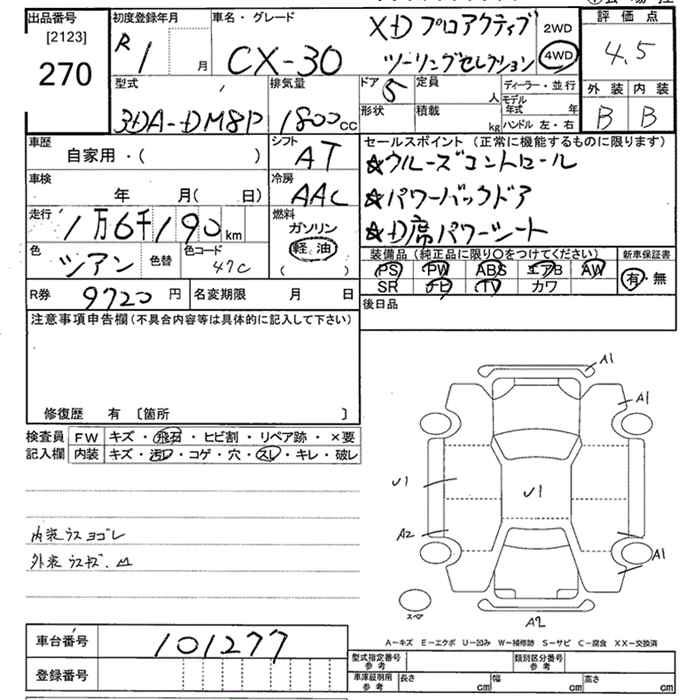 出品番号
[2123]
270
初度登録年月
R 1 月
車名・グレード
CX-30
XD プロアクティブ
ツーリングセレクション
2WD
4WD
評価点
4.5
外装 内装
B B
型式
3DA-DM8P
排気量
1800 cc
ドア 5
形状
定員 人
積載 kg
ディーラー・並行
モデル年式 年
ハンドル 左・右
車歴
自家用・( )
シフト
AT
車検
年 月(日)
冷房
AAC
走行
1万6千190 km
燃料
ガソリン
軽油
( )
色
ツアン
色替
色コード
47C
R券 9720 円
名変期限 月 日
セールスポイント (正常に機能するものに限ります)
★クルーズコントロール
★パワーバックドア
★D席パワーシート
装備品 (純正品に限り○をつけてください)
PS PW ABS エアB AW
SR ナビ TV カワ
新車保証書
有・無
後日品
注意事項申告欄 (不具合内容等は具体的に記入して下さい)
修復歴 有 〔箇所 〕
検査員記入欄
FW キズ・飛石・ヒビ割・リペア跡・×要
内装 キズ・汚レ・コゲ・穴・スレ・キレ・破レ
内装ウス ヨゴレ
外装ウスキズ.凹
A1
A1
U1
U1
A2
A1
スペア
A2
A-キズ E-エクボ U-凹み W-補修跡 S-サビ C-腐食 XX-交換済
車台番号 101277
登録番号
型式指定番号 参考
類別区分番号 参考
車庫証明用 参考
長さ cm 幅 cm 高さ cm